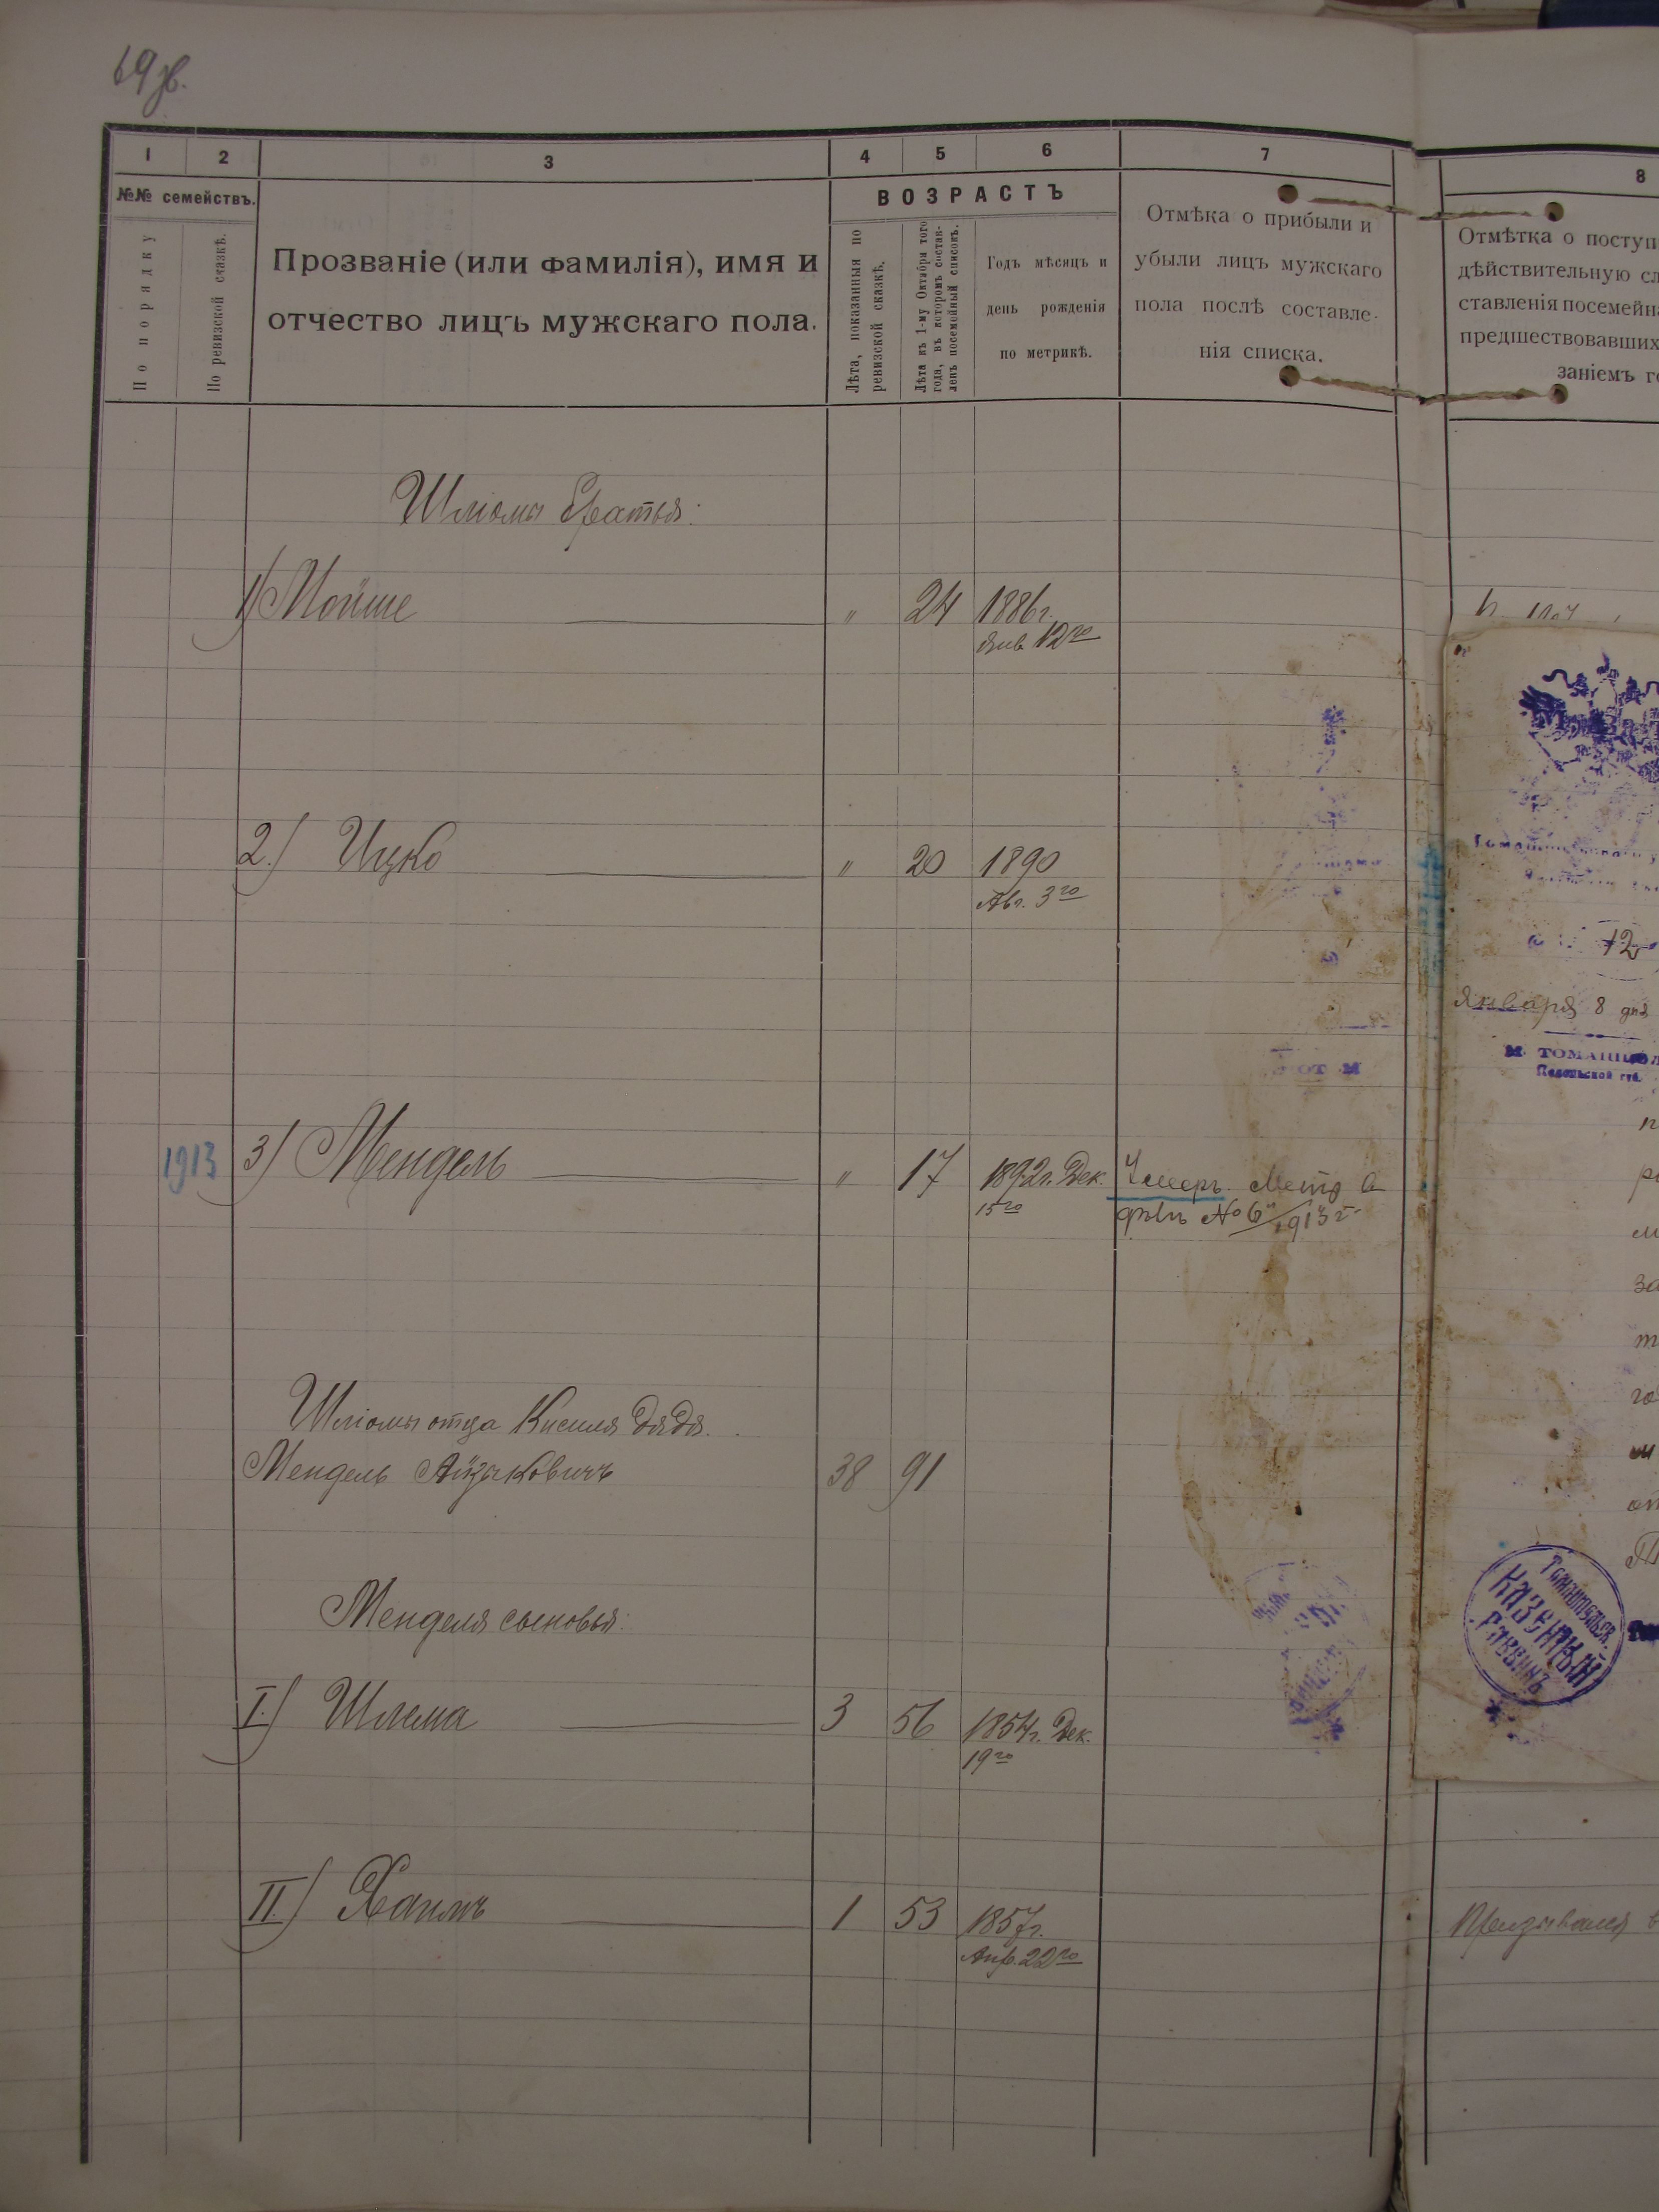 69 зв.
1
2
3
4
5
6
7
8
№№ семействъ.
По порядку
По ревизской сказкѣ.
Прозваніе (или фамилія), имя и
отчество лицъ мужскаго пола.
ВОЗРАСТЪ
Лѣта, показанныя по
ревизской сказкѣ.
Лѣта къ 1-му Октября того
года, въ которомъ состав-
ленъ посемейный списокъ.
Годъ мѣсяцъ и
день рожденія
по метрикѣ.
Отмѣка о прибыли и
убыли лицъ мужскаго
пола послѣ составле-
нія списка.
Отмѣтка о поступ
дѣйствительную сл
ставленія посемейн
предшествовавших
заніемъ г
Шліомы братья:
1) Мойше " 24 1886 г.
Янв 12го
2.) Ицко " 20 1890
Авг. 3го
1913 3) Мендель " 17 1892 г. Дек. Умеръ. Метр в
15го
№ 6 1913 г.
Шліомы отца Кисиля дядя.
Мендель Айзыковичъ 38 91
Менделя сыновья:
I.) Шлема 3 56 1854 г. Дек.
19го
II.) Хаимъ 1 53 1857 г. Призывался в
Апр. 22го
12
Января 8 дня
М. ТОМАШПОЛ
Подольской губ.
Томашпольск.
КАЗЕННЫЙ
РАВВИНЪ